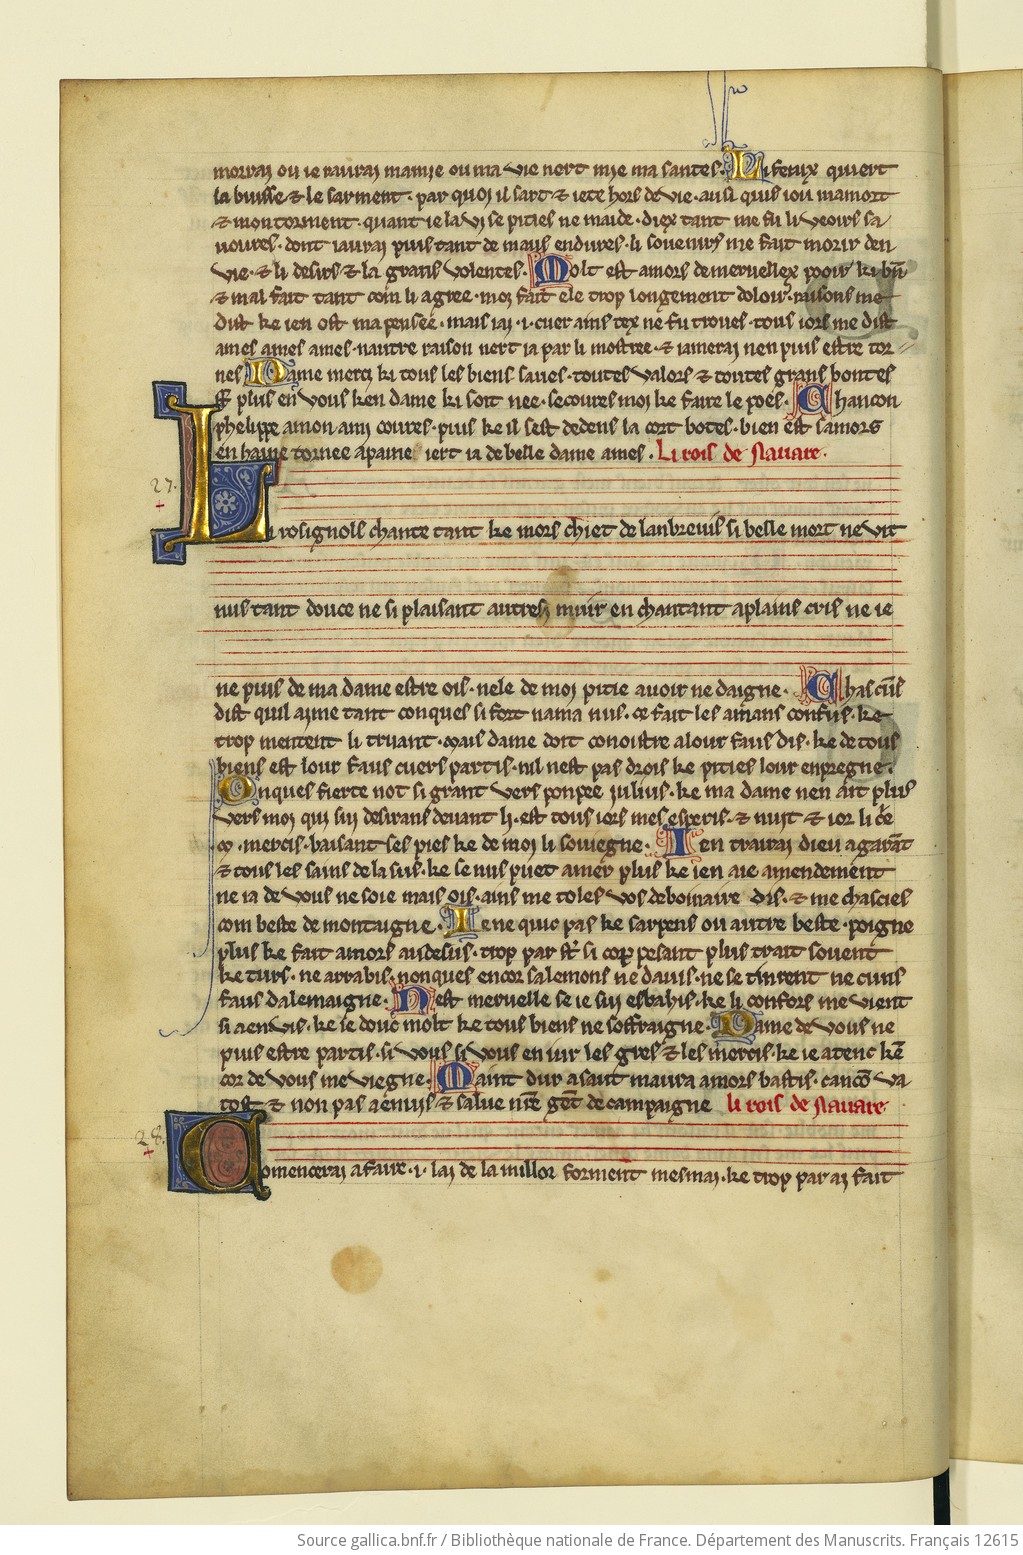 morrai ou ie raurai mamie ou ma vie nert mie ma santes. Li fenix quiert
la buisse & le sarment. par quoi il sart & iete hors de vie. ausi quis iou ma mort
& mon torment. quant ie la vi se pities ne maide. diex tant me fu li veoirs sa
uoures. dont iaurai puis tant de maus endures. li souenirs me fait morir den
vie. & li desirs & la grans volentes. Molt est amors de meruellex pooir ki bn̄
& mal fait tant com li agree. moi fait ele trop longement doloir. raisons me
dist ke ien ost ma pensee. mais iai .i. cuer ains tex ne fu troues. tous iors me dist
ames ames ames. nautre raison nert ia par li mostree. & iamerai nen puis estre tor
nes Dame merci ki tous les biens saues. toutes valors & toutes grans bontes
st̄ plus en vous ken dame ki soit nee. secoures moi ke faire le poes. Chancon
phelippe a mon ami coures. puis ke il sest dedens la cort botes. bien est samors
en haine tornee a paine iert ia de belle dame ames. Li rois de nauare.
27.
Li rosignols chante tant ke mors chiet de lanbreuis si belle mort ne vit
nus tant douce ne si plaisant autresi muir en chantant a plains cris ne ie
ne puis de ma dame estre ois. nele de moi pitie auoir ne daigne. Chascūs
dist quil aime tant conques si fort nama nus. ce fait les amans confus. ke
trop mentent li truant. mais dame doit conoistre a lour faus dis. ke de tous
biens est lour faus cuers partis. nil nest pas drois ke pities lour enpregne.
Onques fierte not si grant vers ponpee iulius. ke ma dame nen ait plus
vers moi qui sui desirans deuant li. est tous iors mes esperis. & nuit & ior li c̄e
.m. mercis. baisant ses pies ke de moi li souiegne. Ien trairai dieu a garāt
& tous les sains de la sus. ke se nus puet amer plus ke ien aie amendement
ne ia de vous ne soie mais ois. ains me toles vos debonaire dis. & me chascies
com beste de montaigne. Ie ne quic pas ke sarpens ou autre beste poigne
plus ke fait amors au desus. trop par st̄ si cop pesant plus trait souent
ke turs. ne arrabis. nonques encor salemons ne dauis. ne se tinrent ne cuns
faus dalemaigne. Nest meruelle se ie sui esbahis. ke li confors me vient
si a envis. ke ie douc molt ke tous biens ne soffraigne. Dame de vous ne
puis estre partis. si vous si vous en iur les gres & les mercis. ke ie atenc kē
cor de vous me viegne. Maint dur asaut maura amors bastis. cancō va
tost & non pas a enuis & salue nr̄e gēt de campaigne li rois de nauare.
28.
Comencerai a faire .i. lai de la millor forment mesmai. ke trop par ai fait
Source gallica.bnf.fr / Bibliothèque nationale de France. Département des Manuscrits. Français 12615